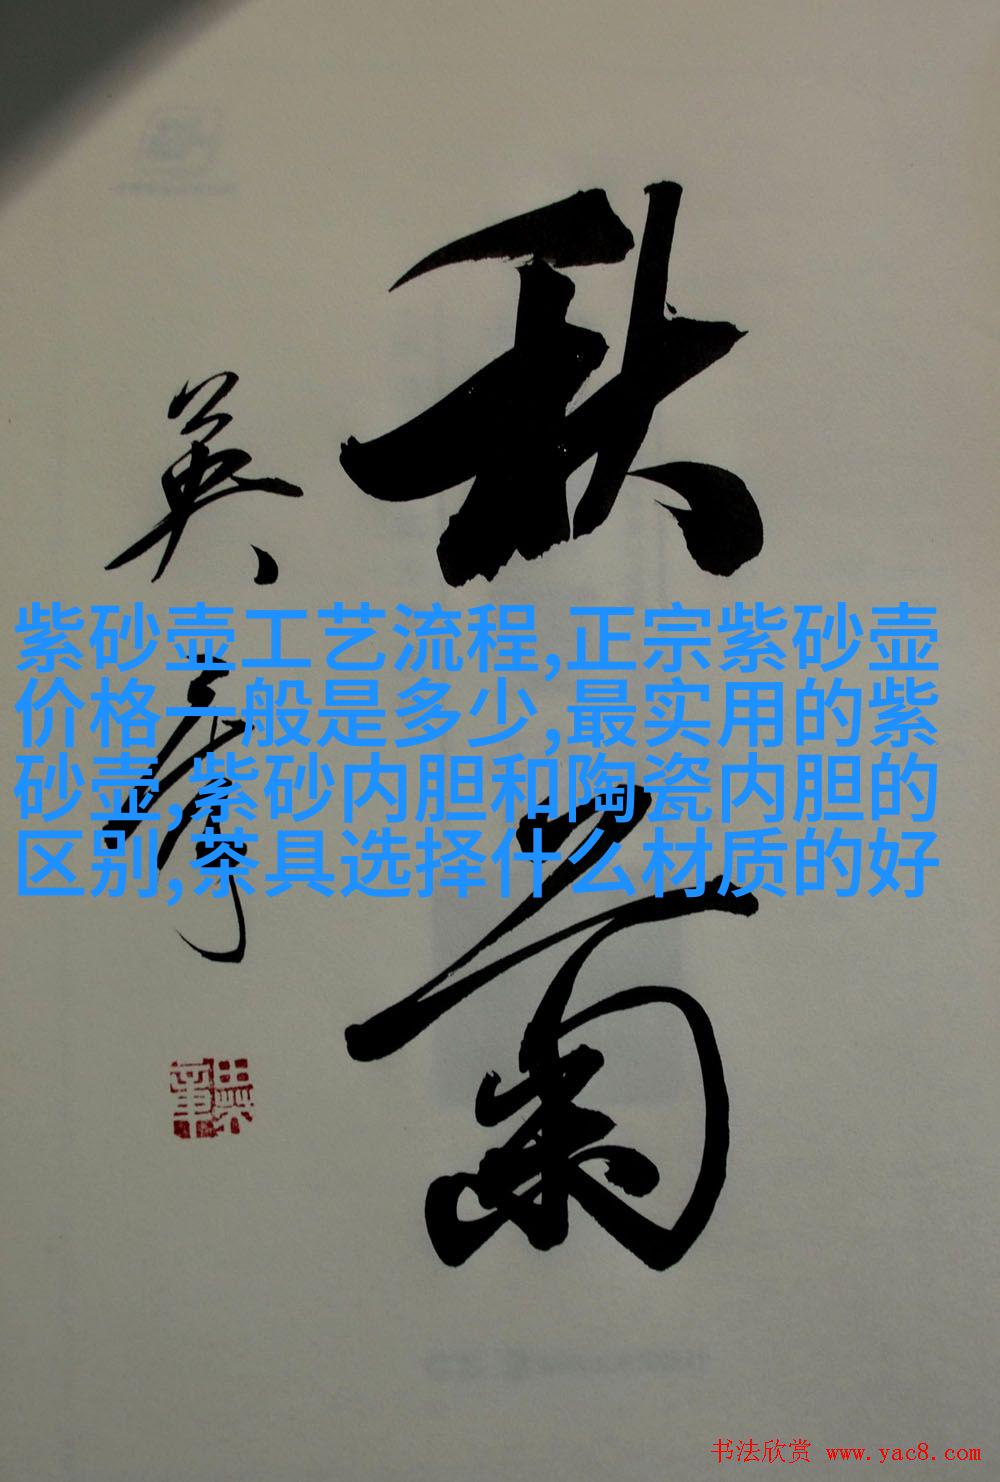 秋菊
英孝
紫砂壶工艺流程,正宗紫砂壶
价格一般是多少,最实用的紫
砂壶,紫砂内胆和陶瓷内胆的
区别,茶具选择什么材质的好
书法欣赏 www.yac8.com